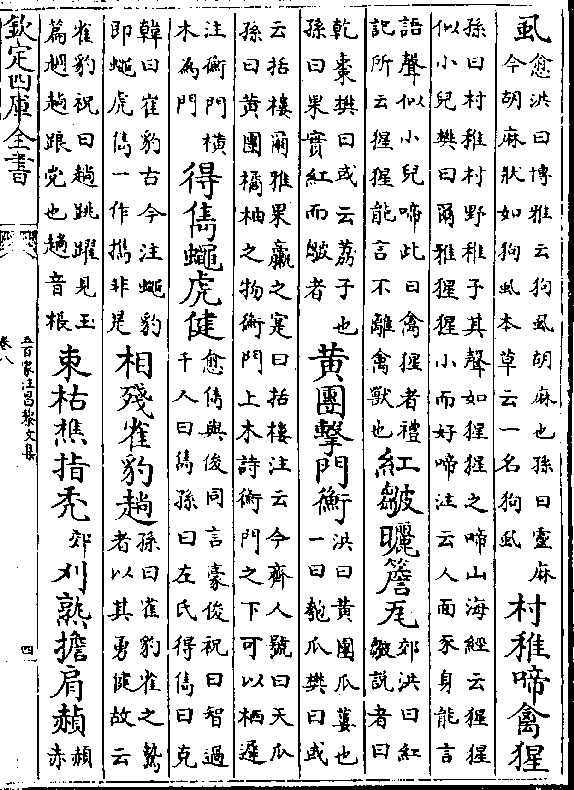 虱 愈洪曰博雅云狗虱胡麻也孫曰靈麻
今胡麻狀如狗虱本草云一名狗虱 村稚啼禽猩
孫曰村稚村野稚子其聲如猩猩之啼山海經云猩猩
似小兒樊曰爾雅猩猩小而好啼注云人面豕身能言
語聲似小兒啼此曰禽猩者禮
記所云猩猩能言不離禽獸也 紅皺曬簷瓦 郊洪曰紅
皺說者曰
乾棗樊曰或云荔子也
孫曰果實紅而皺者 黄團擊門衡 洪曰黄團瓜蔞也
一曰匏瓜樊曰或
云括樓爾雅果臝之寔曰括樓注云今齊人號曰天瓜
孫曰黄團橘柚之物衡門上木詩衡門之下可以栖遲
注衡門横
木為門 得雋蠅虎健 愈雋與俊同言豪俊祝曰智過
千人曰雋孫曰左氏得雋曰克
韓曰崔豹古今注蠅豹
即蠅虎雋一作㒞非是 相殘雀豹趟 孫曰雀豹雀之鷙
者以其勇健故云
雀豹祝曰趟跳躍見玉
篇趟趟踉也趟音根 束枯樵指秃 郊 刈熟擔肩赬 赬
赤
欽定四庫全書
五百家注昌黎文集
卷八
四